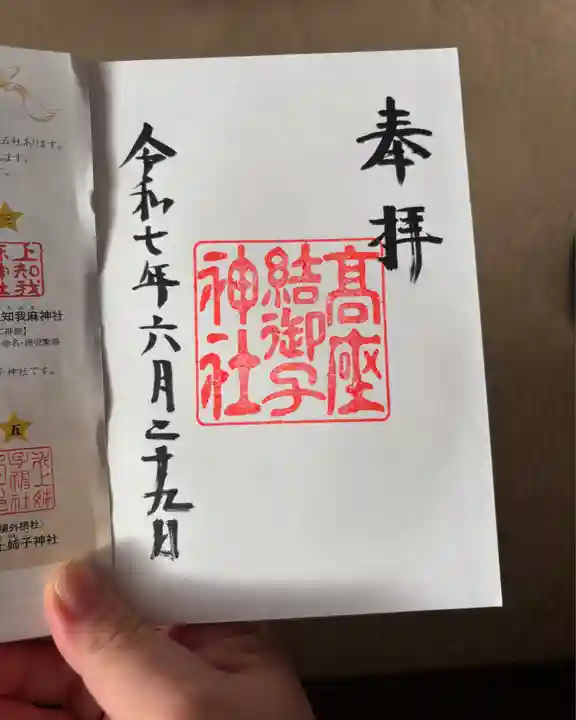 奉拝
髙座
結御子
神社
令和七年六月二十九日
五社あります。
ます。
三
上知我
麻神社
知我麻神社
命名・商売繁盛
子神社です。
五
氷上姉
子神社
境外摂社〉
上姉子神社